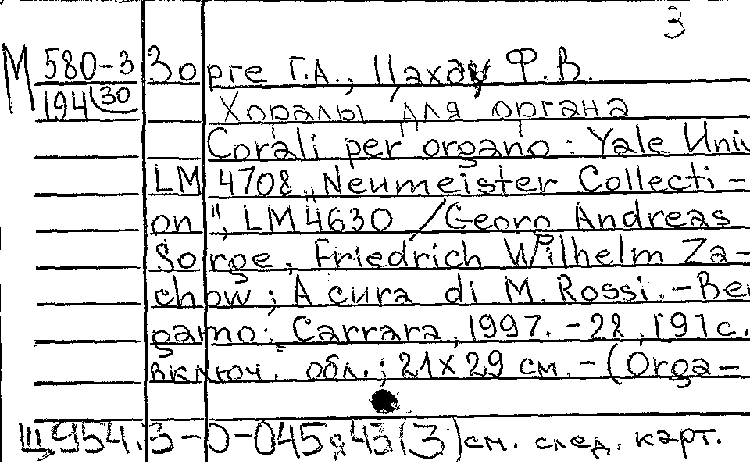 3
М 580-3 Зорге Г.А., Цахау Ф.В.
194(30 Хоралы для органа
Corali per organo: Yale Univ
LM 4708 „Neumeister Collecti-
on", LM 4630 / Georg Andreas
Sorge, Friedrich Wilhelm Za-
chow; A cura di M. Rossi. - Ber
gamo: Carrara, 1997. - 28, [9] с.
включ. обл.; 21x29 см. - (Orga-
Щ954.3-0-045я45(3) см. след. карт.